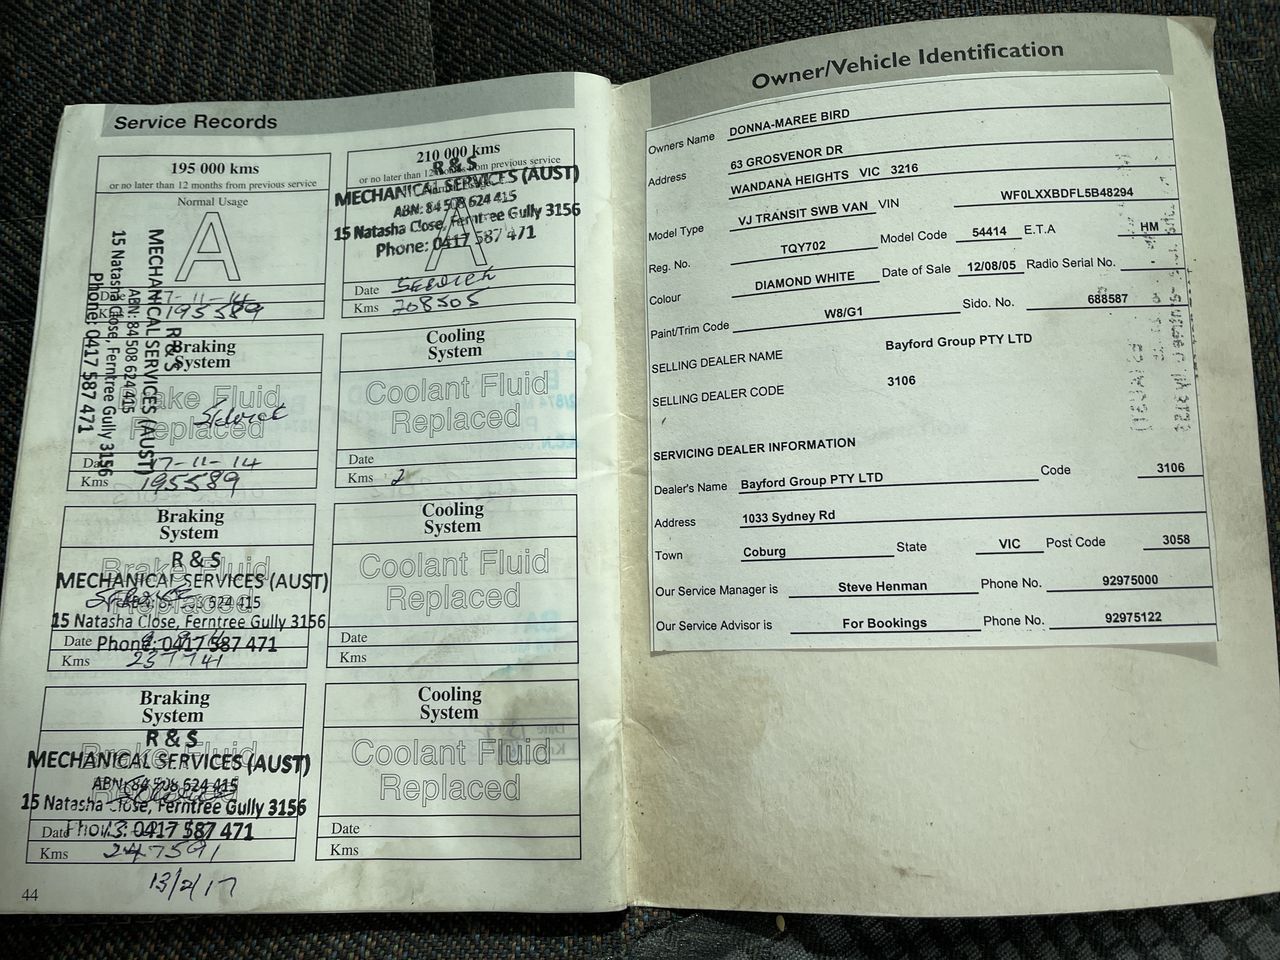 Service Records
195 000 kms
or no later than 12 months from previous service
Normal Usage
A
Date 17-11-14
Kms 195589
R & S
MECHANICAL SERVICES (AUST)
ABN: 84 508 624 415
15 Natasha Close, Ferntree Gully 3156
Phone: 0417 587 471
Braking
System
Brake Fluid
Replaced
Date 17-11-14
Kms 195589
Braking
System
Brake Fluid
Replaced
R & S
MECHANICAL SERVICES (AUST)
ABN: 84 508 624 415
15 Natasha Close, Ferntree Gully 3156
Phone: 0417 587 471
Date
Kms 237741
Braking
System
Brake Fluid
Replaced
R & S
MECHANICAL SERVICES (AUST)
ABN: 84 508 624 415
15 Natasha Close, Ferntree Gully 3156
Phone: 0417 587 471
Date
Kms 247591
13/2/17
44
210 000 kms
or no later than 12 months from previous service
Normal Usage
A
R & S
MECHANICAL SERVICES (AUST)
ABN: 84 508 624 415
15 Natasha Close, Ferntree Gully 3156
Phone: 0417 587 471
Date
Kms 208505
Cooling
System
Coolant Fluid
Replaced
Date
Kms
Cooling
System
Coolant Fluid
Replaced
Date
Kms
Cooling
System
Coolant Fluid
Replaced
Date
Kms
Owner/Vehicle Identification
Owners Name DONNA-MAREE BIRD
Address 63 GROSVENOR DR
WANDANA HEIGHTS VIC 3216
Model Type VJ TRANSIT SWB VAN VIN WF0LXXBDFL5B48294
Reg. No. TQY702 Model Code 54414 E.T.A HM
Colour DIAMOND WHITE Date of Sale 12/08/05 Radio Serial No.
Paint/Trim Code W8/G1 Sido. No. 688587
SELLING DEALER NAME Bayford Group PTY LTD
SELLING DEALER CODE 3106
SERVICING DEALER INFORMATION
Dealer's Name Bayford Group PTY LTD Code 3106
Address 1033 Sydney Rd
Town Coburg State VIC Post Code 3058
Our Service Manager is Steve Henman Phone No. 92975000
Our Service Advisor is For Bookings Phone No. 92975122